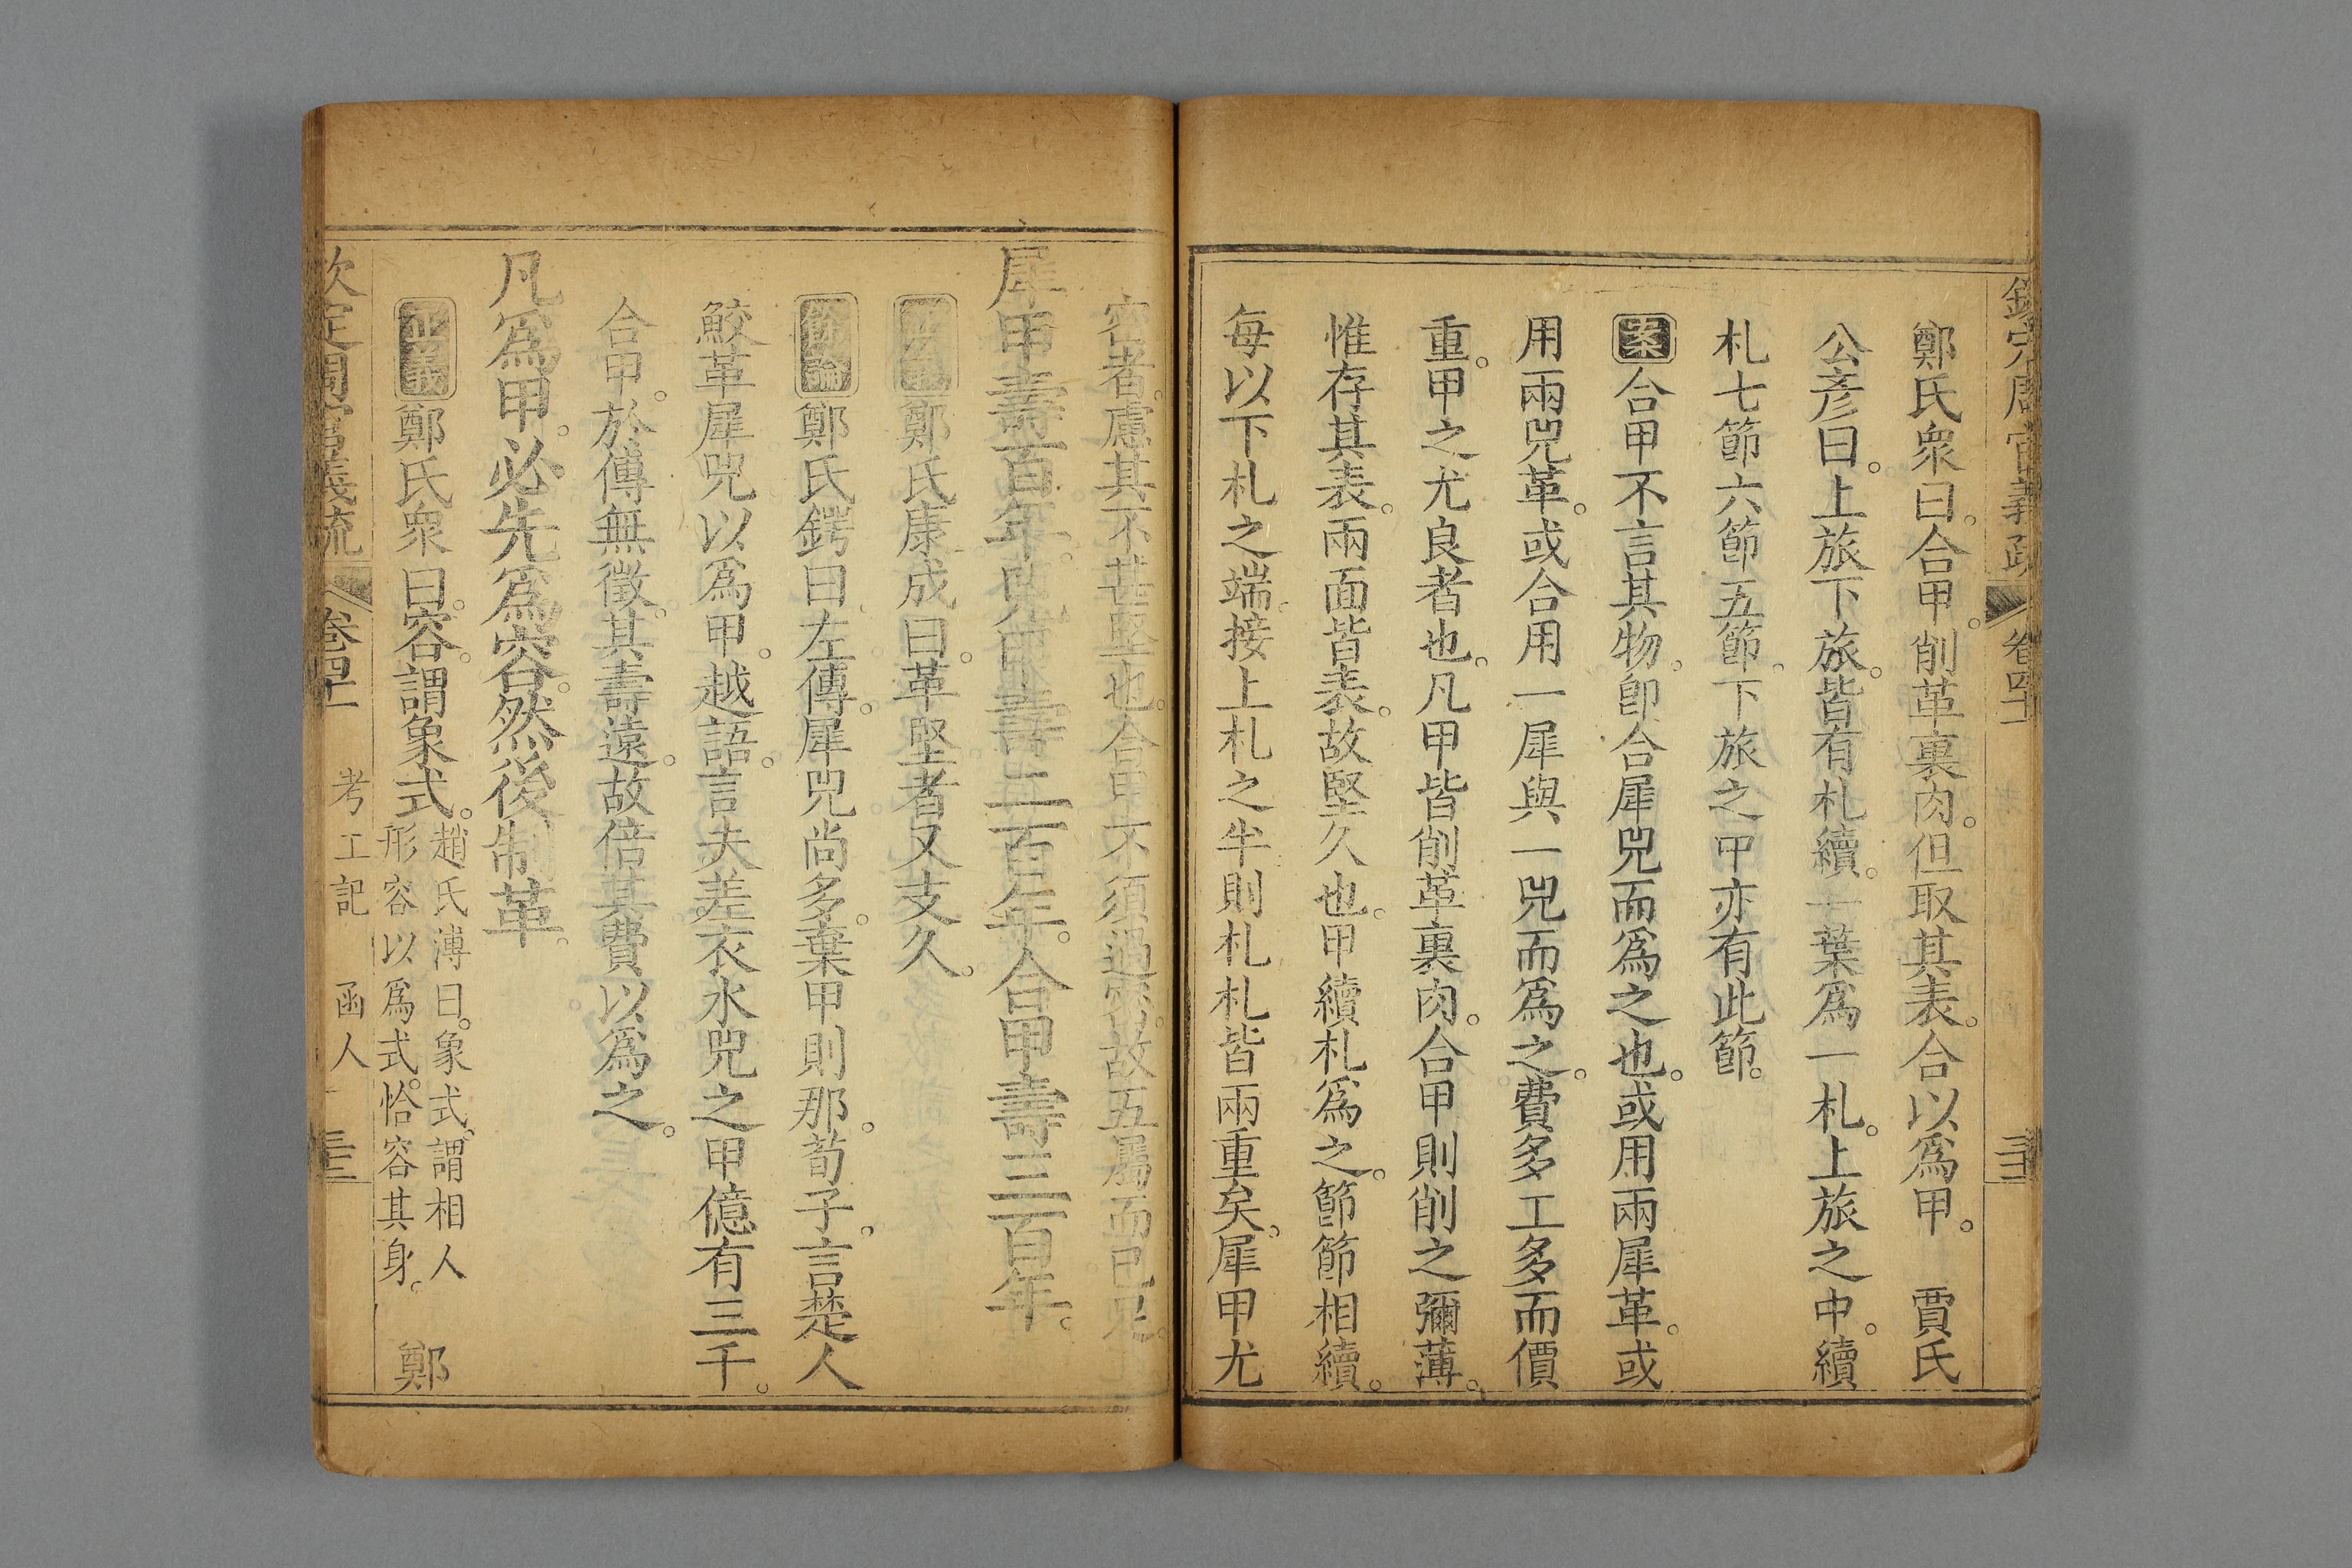 鄭氏衆曰。合甲。削革裏肉。但取其表。合以爲甲。 賈氏
公彥曰。上旅下旅。皆有札續。一葉爲一札。上旅之中。續
札七節六節五節。下旅之甲亦有此節。
案合甲不言其物。卽合犀兕而爲之也。或用兩犀革。或
用兩兕革。或合用一犀與一兕而爲之。費多工多而價
重。甲之尤良者也。凡甲皆削革裏肉。合甲則削之彌薄。
惟存其表。兩面皆表。故堅久也。甲續札爲之。節節相續。
每以下札之端。接上札之半則札札皆兩重矣。犀甲尤
密者。慮其不甚堅也。合甲不須過密。故五屬而已兕。
犀甲壽百年。兕甲壽二百年。合甲壽三百年。
正義鄭氏康成曰。革堅者又支久。
餘論鄭氏鍔曰。左傳。犀兕尚多。棄甲則那。荀子。言楚人
鮫革犀兕以爲甲。越語。言夫差衣水兕之甲億有三千。
合甲。於傳無徵。其壽遠。故倍其費以爲之。
凡爲甲。必先爲容。然後制革。
正義鄭氏衆曰。容。謂象式。趙氏溥曰。象式。謂相人形容以爲式。恰容其身。 鄭
欽定周官義疏 卷四十一 考工記 函人 三十三